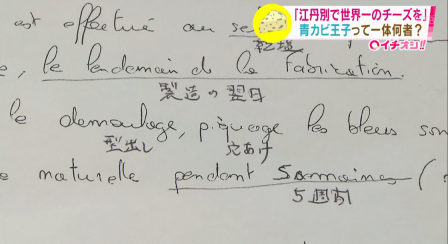 「江丹別で世界一のチーズを」
青カビ王子って一体何者？
イチオシ!!
est effectué au se
乾塩
, le lendemain de la fabrication.
製造の翌日
le demoulage, piquage les bleus son
型出し 穴あけ
e naturelle pendant 5 semaines (
5週間